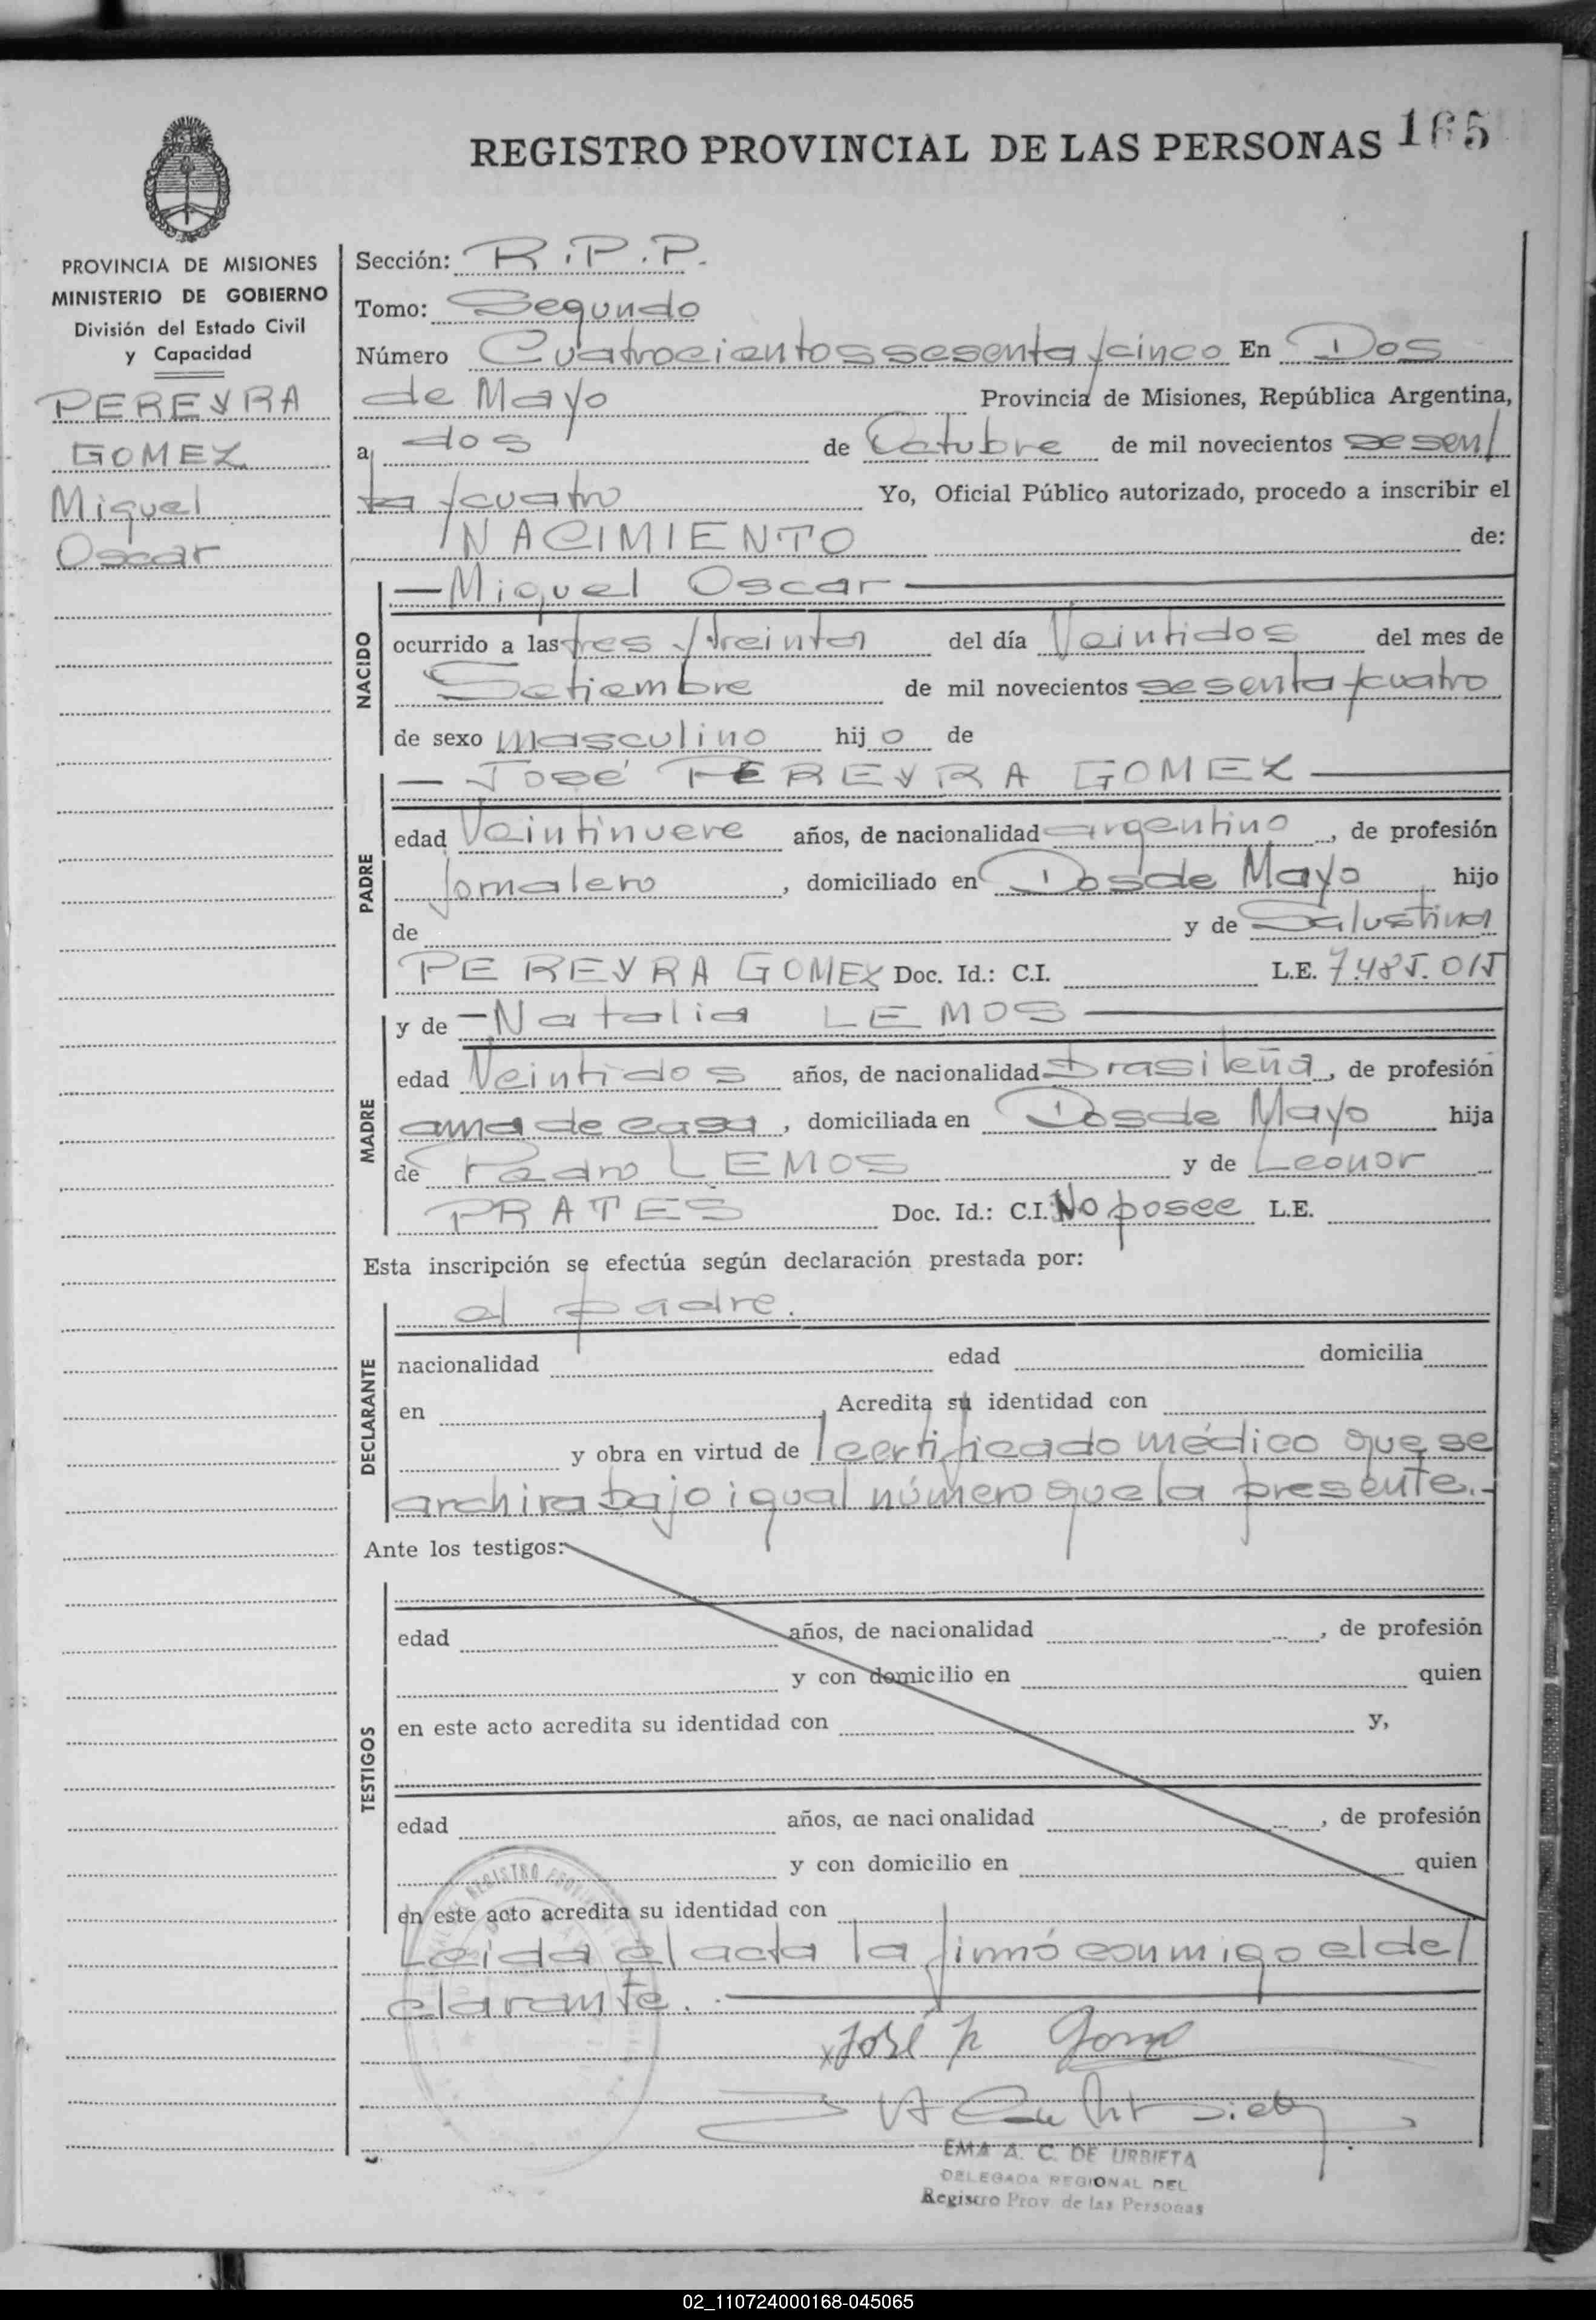 REGISTRO PROVINCIAL DE LAS PERSONAS 165
PROVINCIA DE MISIONES
MINISTERIO DE GOBIERNO
División del Estado Civil
y Capacidad
PEREYRA
GOMEZ
Miguel
Oscar
Sección: R.P.P.
Tomo: Segundo
Número Cuatrocientos sesenta y cinco En Dos
de Mayo Provincia de Misiones, República Argentina,
a dos de Octubre de mil novecientos sesen/
ta y cuatro Yo, Oficial Público autorizado, procedo a inscribir el
NACIMIENTO de:
NACIDO
— Miguel Oscar —
ocurrido a las tres y treinta del día Veintidos del mes de
Setiembre de mil novecientos sesenta y cuatro
de sexo masculino hijo de
PADRE
— José PEREYRA GOMEZ —
edad Veintinueve años, de nacionalidad argentino, de profesión
Jornalero, domiciliado en Dos de Mayo hijo
de y de Salustina
PEREYRA GOMEZ Doc. Id.: C.I. L.E. 7.485.015
MADRE
y de — Natalia LEMOS —
edad Veintidos años, de nacionalidad brasileña, de profesión
ama de casa, domiciliada en Dos de Mayo hija
de Pedro LEMOS y de Leonor
PRATES Doc. Id.: C.I. No posee L.E.
Esta inscripción se efectúa según declaración prestada por:
DECLARANTE
el padre.
nacionalidad edad domicilia
en Acredita su identidad con
y obra en virtud de / certificado médico que se
archiva bajo igual número que la presente.-
Ante los testigos:
TESTIGOS
edad años, de nacionalidad , de profesión
y con domicilio en quien
en este acto acredita su identidad con y,
edad años, de nacionalidad , de profesión
y con domicilio en quien
en este acto acredita su identidad con
Leida el acta la firmó conmigo el de/
clarante. —
x José p Gome
EMA A. C. DE URBIETA
DELEGADA REGIONAL DEL
Registro Prov de las Personas
02_110724000168-045065